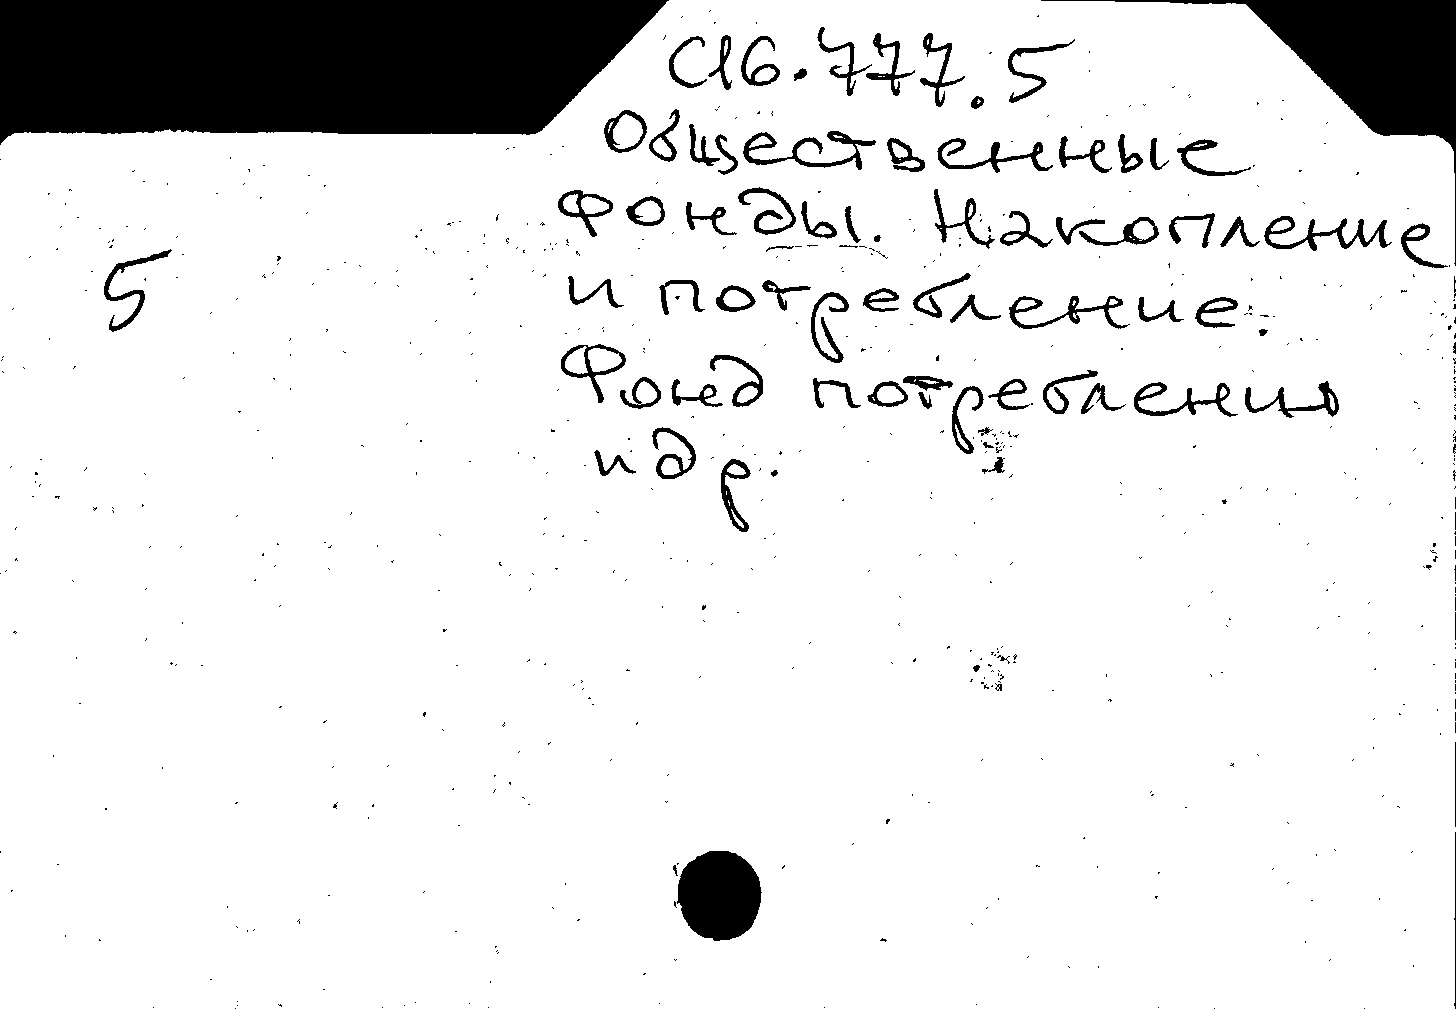 С16.777.5
Общественные
фонды. Накопление
5
и потребление.
Фонд потребления
и др.